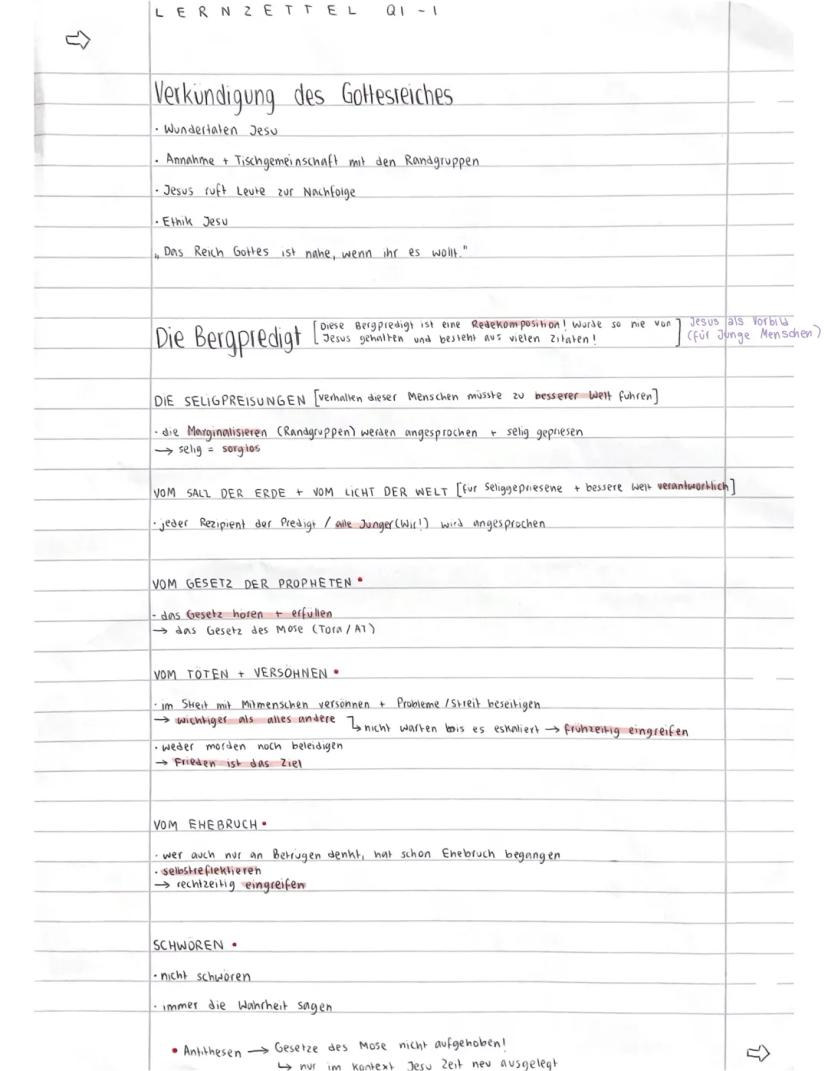 LERNZETTEL Q1-1
Verkündigung des Gottesreiches
· Wundertaten Jesu
· Annahme + Tischgemeinschaft mit den Randgruppen
· Jesus ruft Leute zur Nachfolge
· Ethik Jesu
„Das Reich Gottes ist nahe, wenn ihr es wollt."
Die Bergpredigt [Diese Bergpredigt ist eine Redekomposition! Wurde so nie von
Jesus gehalten und besteht aus vielen Zitaten!]
Jesus als Vorbild
(für Junge Menschen)
DIE SELIGPREISUNGEN [Verhalten dieser Menschen müsste zu besserer Welt führen]
· die Marginalisieren (Randgruppen) werden angesprochen + selig gepriesen
→ selig = sorglos
VOM SALZ DER ERDE + VOM LICHT DER WELT [für Seliggepriesene + bessere Welt verantwortlich]
· jeder Rezipient der Predigt / alle Jünger (Wir!) wird angesprochen
VOM GESETZ DER PROPHETEN •
· das Gesetz hören + erfüllen
→ das Gesetz des Mose (Tora/AT)
VOM TÖTEN + VERSÖHNEN •
· im Streit mit Mitmenschen versönnen + Probleme/Streit beseitigen
→ wichtiger als alles andere ↳ nicht warten bis es eskaliert → frühzeitig eingreifen
· weder morden noch beleidigen
→ Frieden ist das Ziel
VOM EHEBRUCH •
· wer auch nur an Betrügen denkt, hat schon Ehebruch begangen
· selbstreflektieren
→ rechtzeitig eingreifen
SCHWÖREN •
· nicht schwören
· immer die Wahrheit sagen
• Antithesen → Gesetze des Mose nicht aufgehoben!
↳ nur im Kontext Jesu Zeit neu ausgelegt